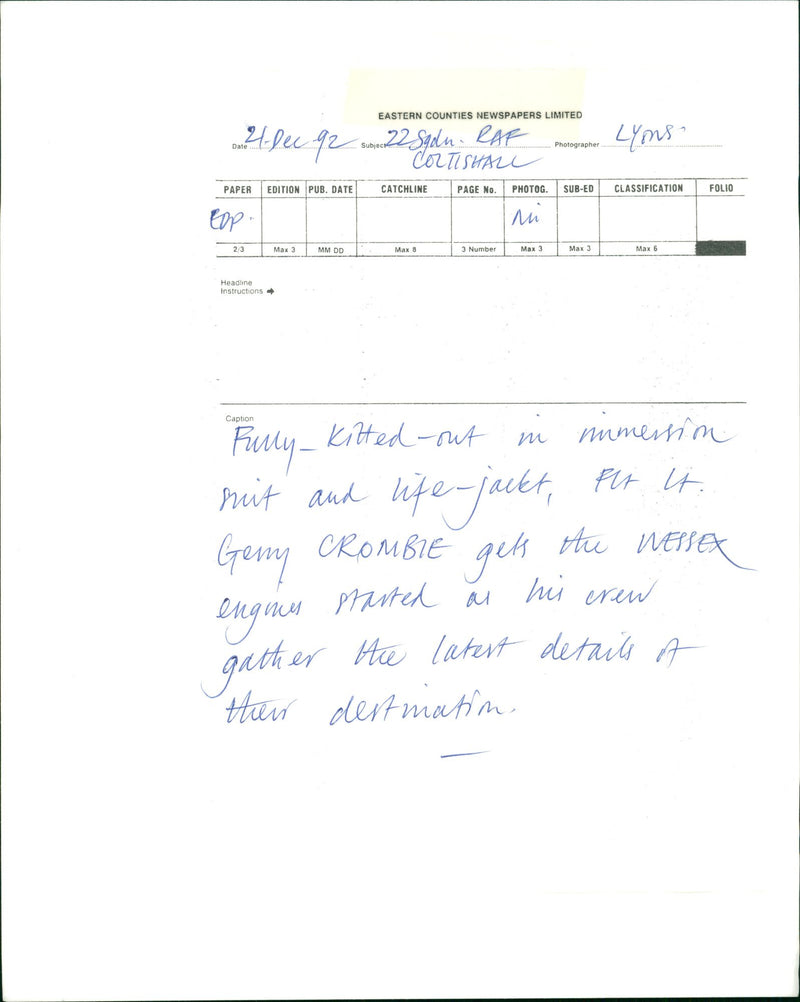 EASTERN COUNTIES NEWSPAPERS LIMITED
Date 21 Dec 92 Subject 22 Sqdn. RAF Photographer Lyons.
COLTISHALL
PAPER EDITION PUB. DATE CATCHLINE PAGE No. PHOTOG. SUB-ED CLASSIFICATION FOLIO
EDP.
2/3 Max 3 MM DD Max 8 3 Number Max 3 Max 3 Max 6
Headline
Instructions →
Caption
Fully-kitted-out in immersion
suit and life-jacket, Flt Lt.
Gerry CROMBIE gets the WESSEX
engines started as his crew
gather the latest details of
their destination.